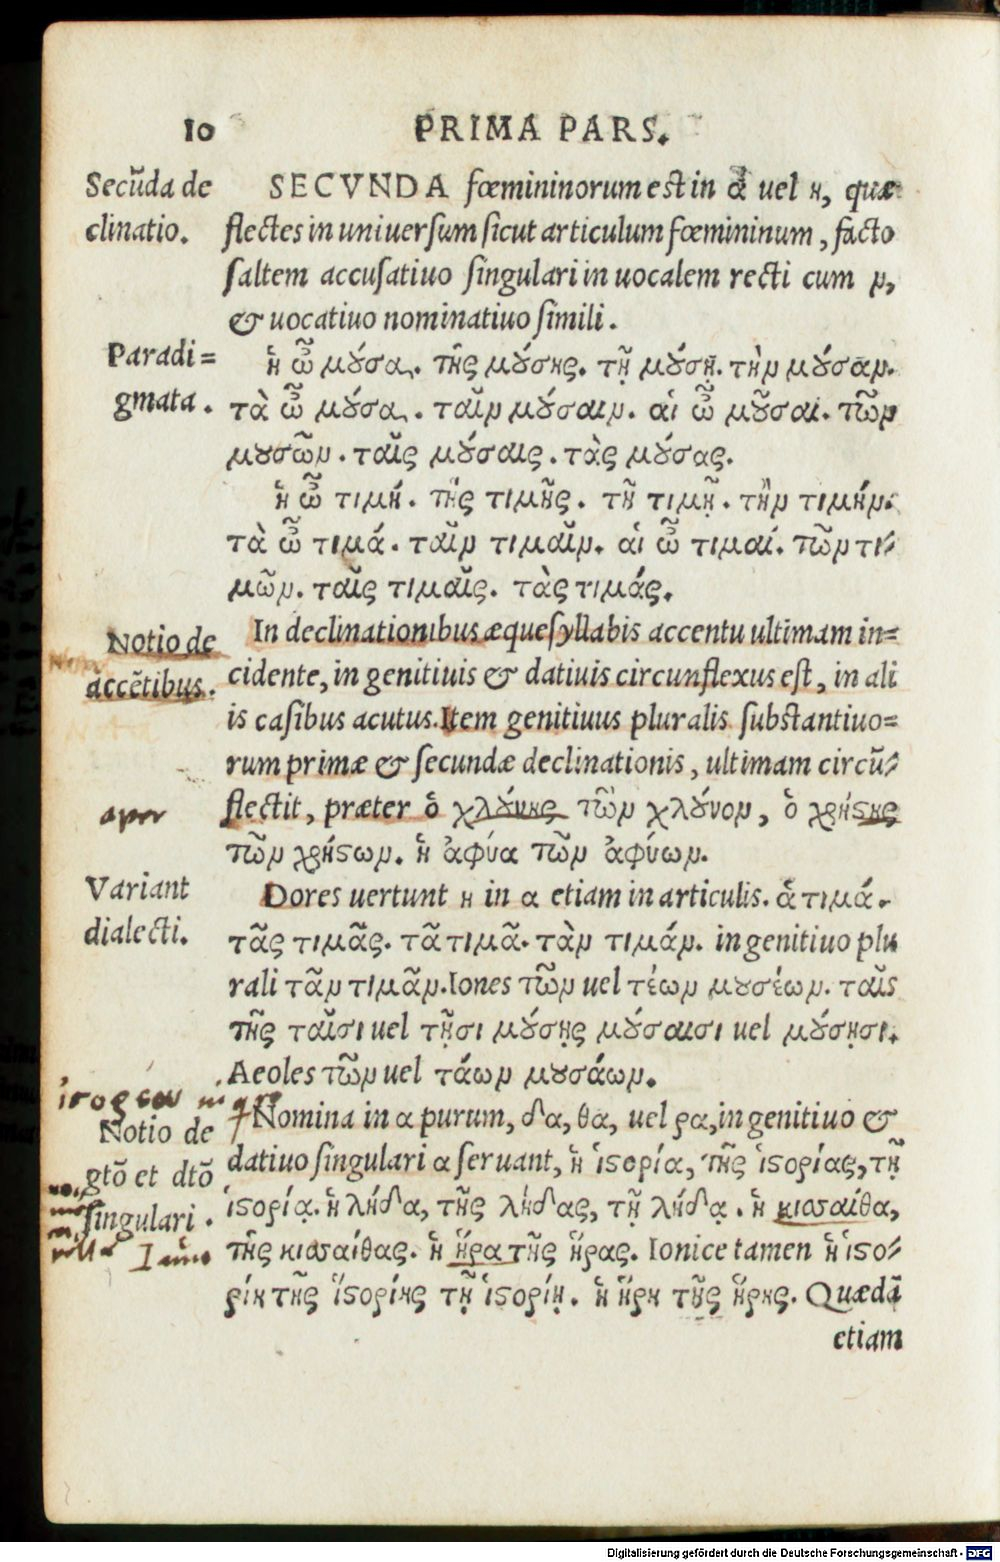 10 PRIMA PARS.
Secūda de
clinatio.
SECVNDA fœmininorum est in α uel η, quæ
flectes in uniuersum sicut articulum fœmininum, facto
saltem accusatiuo singulari in uocalem recti cum ν,
& uocatiuo nominatiuo simili.
Paradi=
gmata.
ἡ ὦ μούσα. τῆς μούσης. τῇ μούσῃ. τὴν μούσαν.
τὰ ὦ μούσα. ταῖν μούσαιν. αἱ ὦ μοῦσαι. τῶν
μουσῶν. ταῖς μούσαις. τὰς μούσας.
ἡ ὦ τιμή. τῆς τιμῆς. τῇ τιμῇ. τὴν τιμήν.
τὰ ὦ τιμά. ταῖν τιμαῖν. αἱ ὦ τιμαί. τῶν τι-
μῶν. ταῖς τιμαῖς. τὰς τιμάς.
Notio de
accētibus.
In declinationibus æquesyllabis accentu ultimam in=
cidente, in genitiuis & datiuis circunflexus est, in ali
is casibus acutus. Item genitiuus pluralis substantiuo=
rum primæ & secundæ declinationis, ultimam circū-
flectit, præter ὁ χλούνης τῶν χλούνον, ὁ χρήστης
τῶν χρήστων. ἡ ἀφύα τῶν ἀφύων.
aper
Variant
dialecti.
Dores uertunt η in α etiam in articulis. ἁ τιμά.
τᾶς τιμᾶς. τᾷ τιμᾷ. τὰν τιμάν. in genitiuo plu
rali τᾶν τιμᾶν. Iones τῶν uel τέων μουσέων. ταῖς
τῆς ταῖσι uel τῇσι μούσῃς μούσαισι uel μούσῃσι.
Aeoles τῶν uel τάων μουσάων.
Notio de
gtō et dtō
singulari.
Nomina in α purum, δα, θα, uel ρα, in genitiuo &
datiuo singulari α seruant, ἡ ἱστορία, τῆς ἱστορίας, τῇ
ἱστορίᾳ. ἡ λήδα, τῆς λήδας, τῇ λήδᾳ. ἡ κισσαίθα,
τῆς κισσαίθας. ἡ ἥρα τῆς ἥρας. Ionice tamen ἡ ἱστο-
ρίη τῆς ἱστορίης τῇ ἱστορίῃ. ἡ ἥρη τῆς ἥρης. Quædā
Iuno
etiam
Digitalisierung gefördert durch die Deutsche Forschungsgemeinschaft - DFG